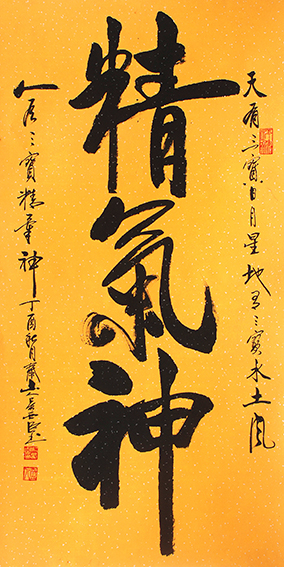 天有三寶日月星地有三寶水土風
精氣神
人有三寶精氣神丁酉